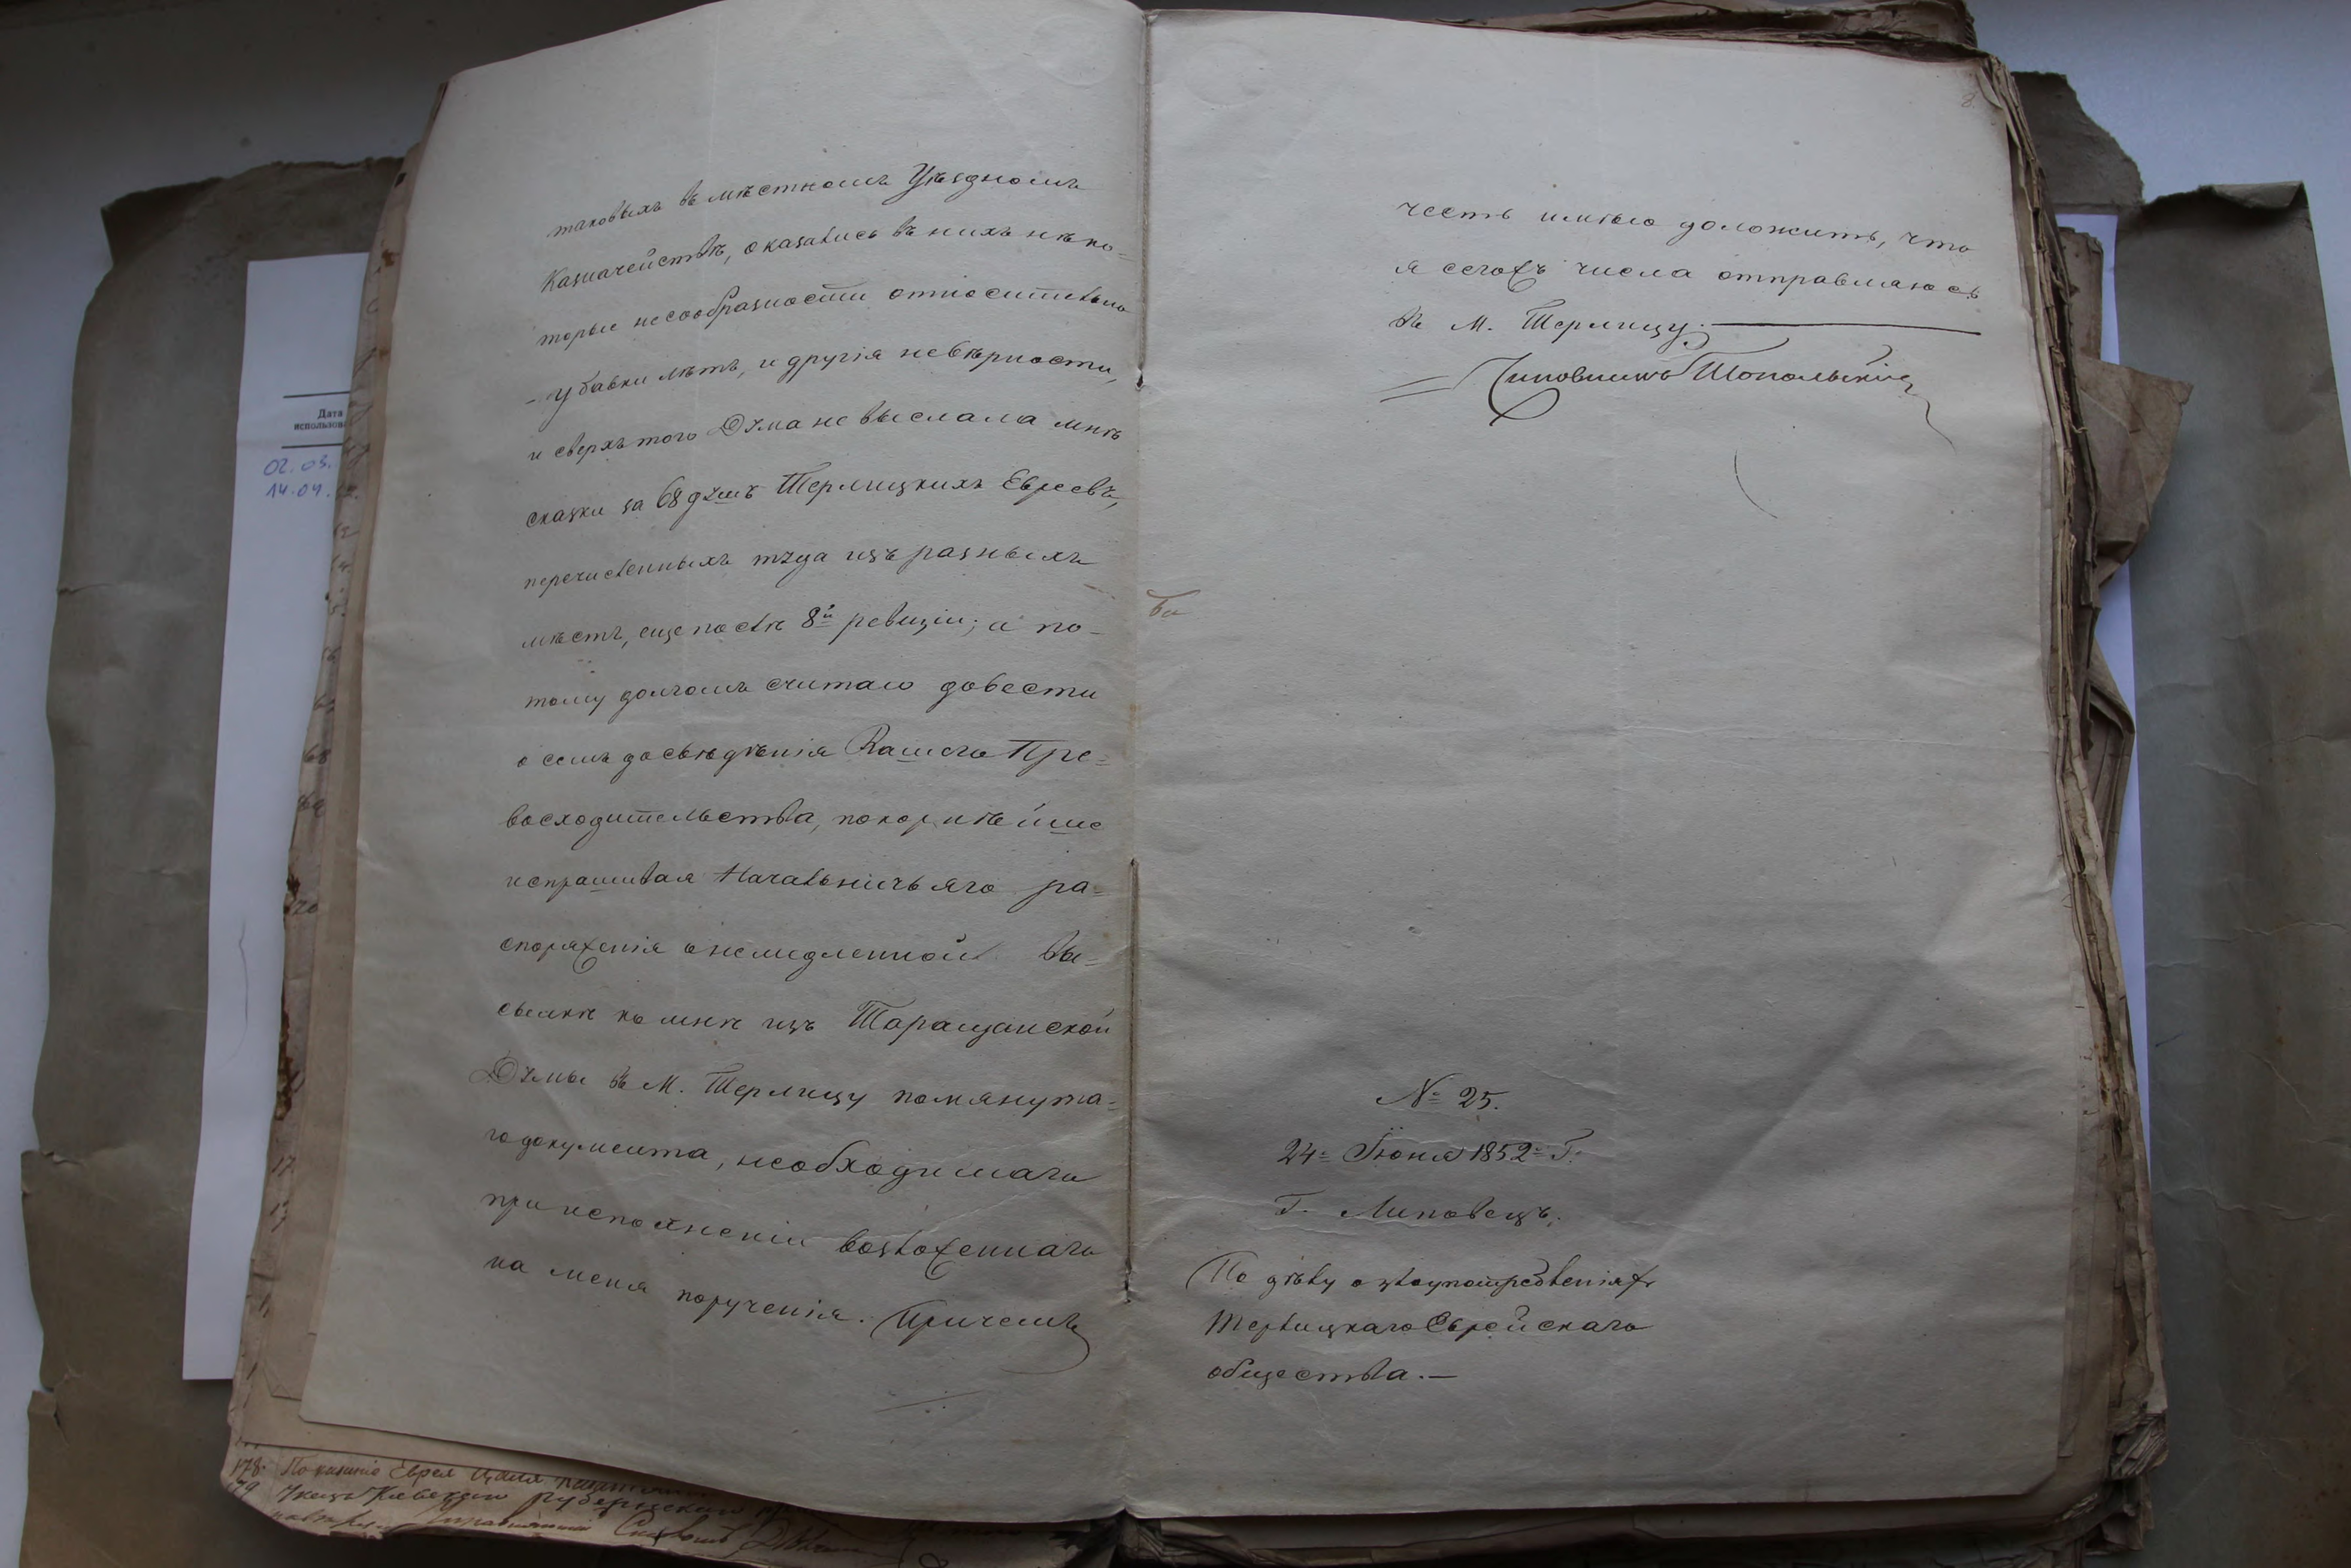 таковыхъ въ мѣстномъ Уѣздномъ
Казначействѣ, оказались въ нихъ нѣко=
торые несообразности относительно
убавки лѣтъ, и другія невѣрности,
и сверхъ того Дума не выслала мнѣ
сказки за 68 душъ Терлицкихъ Евреевъ,
перечисленныхъ туда изъ разныхъ
мѣстъ, еще послѣ 8й ревизіи; а по-
тому долгомъ считаю довести
о семъ до свѣдѣнія Вашего Пре=
восходительства, покорнѣйше
испрашивая Начальничьяго ра=
споряженія о немедленной вы=
сылкѣ ко мнѣ изъ Таращанской
Думы въ М. Терлицу помянута=
го документа, необходимаго
при исполненіи возложеннаго
на меня порученія. Причемъ
8
честь имѣю доложить, что
я сегожъ числа отправляюсь
въ М. Терлицу.
Чиновникъ Топольскій
№ 25.
24= Іюня 1852= Г.
Г. Липовецъ.
По дѣлу о злоупотребленіяхъ
Терлицкаго Еврейскаго
общества.—
Дата
использов
02.03.
14.04.
68
69
70
17
178. Показаніе Еврея
79 Указъ Кіевской Губернской